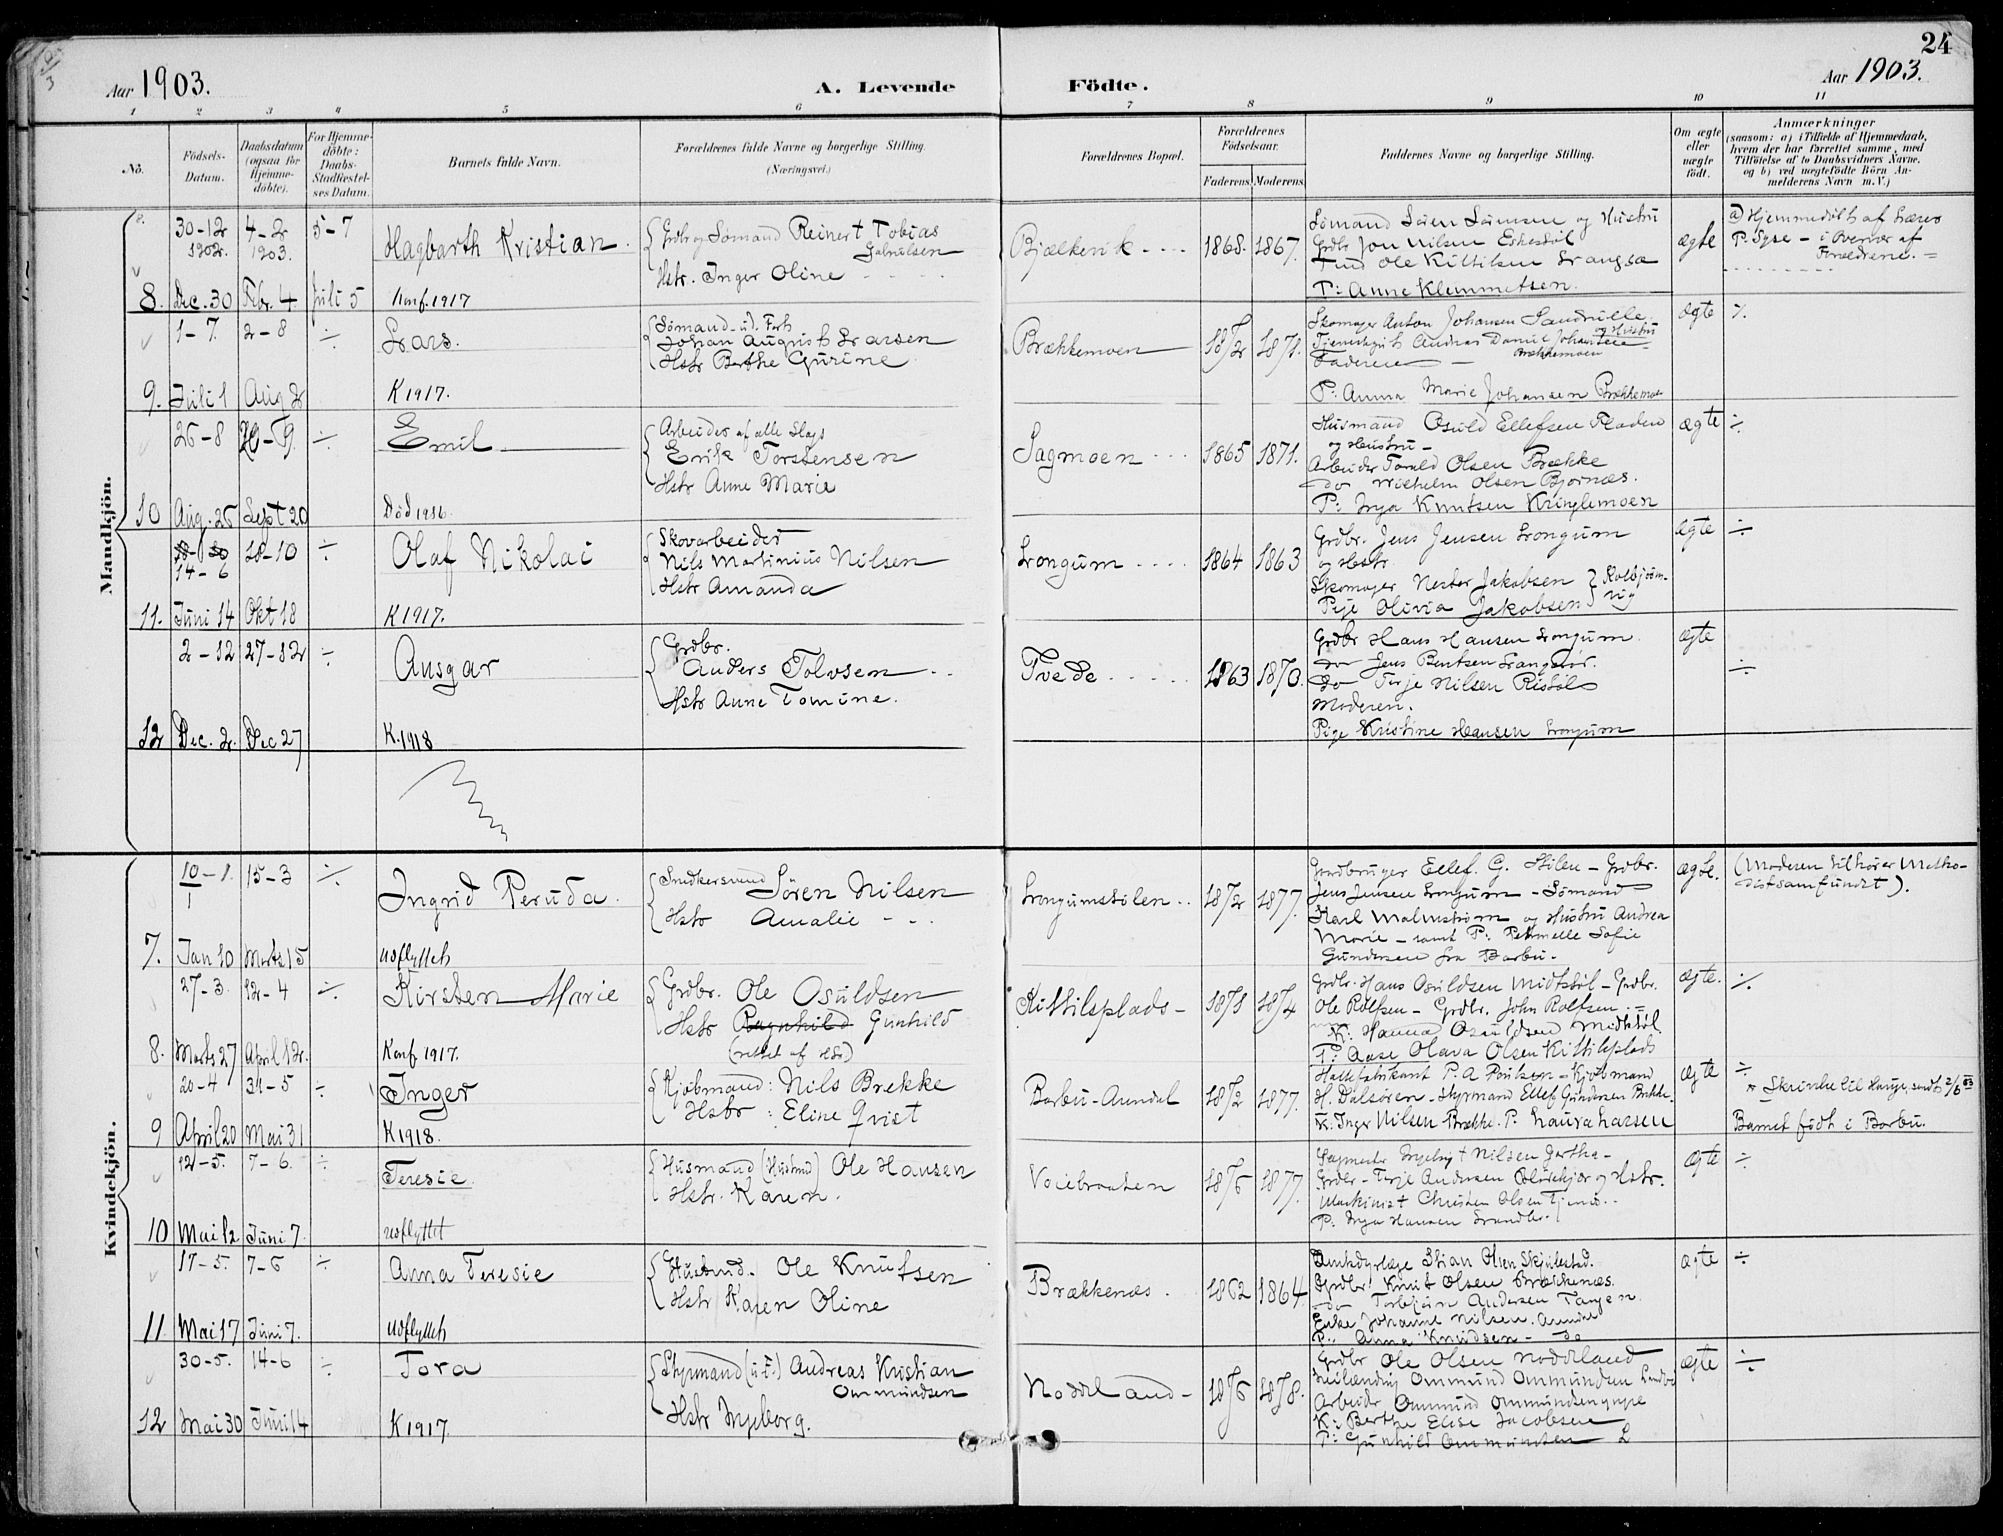 24
Aar 1903.
A. Levende Födte.
Aar 1903.
1 2 3 4 5 6 7 8 9 10 11
No.
Födsels-Datum.
Daabsdatum (ogsaa for Hjemmedöbte).
For Hjemmedöbte: Daabs-Stadfæstelses Datum.
Barnets fulde Navn.
Forældrenes fulde Navne og borgerlige Stilling.
(Næringsvei.)
Forældrenes Bopæl.
Forældrenes Födselsaar.
Faderens. Moderens.
Faddernes Navne og borgerlige Stilling.
Om ægte eller uægte födt.
Anmærkninger
(saasom: a) i Tilfælde af Hjemmedaab,
hvem der har forrettet samme, med
Tilföielse af to Daabsvidners Navne,
og b) ved uægtefödte Börn An-
melderens Navn m.V.)
Mandkjön.
30-12 1902. 4-2 1903. 5-7
8. Dec. 30 Febr. 4 Juli 5
Hagbarth Kristian.
Konf. 1917
Grdbr og Sømand Reinert Tobias
Gabrielsen
Hstr. Inger Oline
Bjælkevik
1868. 1867.
Sømand Søren Sørensen og Hustru
Grdbr Jon Nilsen Eskestøl
Tind Ole Kittilsen Langsæ
P: Anne Klemmetsen.
ægte
a) Hjemmedøbt af Lærer
P. Syse – i Overvær af
Forældrene.
1-7. 2-8 ÷
9. Juli 1 Aug 2
Lars.
K 1917.
Sømand u. d. Fart
Johan August Larsen
Hstr Berthe Gurine
Brækkemoen
1872 1871.
Skomager Anton Johansen Sandrille
og Hustru
Tjenestegut Andreas Daniel Johansen
Brækkemoen
Faderen
P: Anna Marie Johansen Brækkemoe
ægte ÷
26-8 20-9. ÷
10 Aug. 26 Sept 20
Emil
Død 1986.
Arbeider af alle slags
Erik Torstensen
Hstr Anne Marie
Sagmoen
1865 1871.
Husmand Osuld Ellefsen Fladen
og Hustru –
Arbeider Torald Olsen Brække
do Wilhelm Olsen Bjornæs.
P: Inga Knutsen Kringlemoen
ægte ÷
14-6 18-10 ÷
11. Juni 14 Okt 18
Olaf Nikolai
K 1917.
Skovarbeider
Nils Martinius Nilsen
Hstr Amanda
Longum
1864 1863
Grdbr. Jens Jensen Longum
og Hstr
Skomager Nester Jakobsen
Pige Olivia Jakobsen } Kolbjörnsvig
ægte ÷
2-12 27-12 ÷
12 Dec. 2. Dec 27
Ansgar
K. 1918
Grdbr.
Anders Tolvsen
Hstr Anne Tomine.
Tvede
1863 1870.
Grdbr Hans Hansen Longum
do Jens Bentsen Langsæ.
do Terje Nilsen Ristøl
Moderen.
Pige Kristine Hansen Longum
ægte ÷
Kvindekjön.
10-1 15-3 ÷
7. Jan 10 Marts 15
Ingrid Peruda.
udflyttet
Snedkersvend Sören Nilsen
Hstr Amalie
Longumstølen
1872 1877.
Gardbruger Ellef G. Stølen – Grdbr.
Jens Jensen Longum – Sømand
Karl Malmstrøm og Hustru Andrea
Marie – samt P: Petronelle Sofie
Gundersen fra Barbu.
ægte.
(Moderen tilhører Metho-
distsamfundet).
27-3. 12-4 ÷
8. Marts 27 April 12.
Kirsten Marie
Konf 1917.
Grdbr. Ole Osuldsen
Hstr Ragnhild Gunhild
(rettet af)
Kittilsplads
1871 1874
Grdbr. Hans Osuldsen Midtstøl – Grdbr.
Ole Rolfsen – Grdbr. John Rolfsen –
K: Hanna Osuldsen Midtstøl
P: Aase Olava Olsen Kittilsplads
ægte. ÷
20-4 31-5 ÷
9 April 20 Mai 31
Inger
K 1918.
Kjøbmand: Nils Brekke
Hstr: Eline Qvist
Barbu-Arendal
1872 1877.
Hattefabrikant P. A Poulsen – Kjøbmand
H. Dalsøren – Styrmand Ellef Gundersen Brække.
K: Inger Nilsen Brække. P. Laura Larsen
ægte ÷
Barnet födt i Barbu.
12-5. 7-6. ÷
10 Mai 12 Juni 7.
Teresie.
udflyttet
Husmand (Husmd) Ole Hansen
Hstr. Karen.
Voiebraaten
1876 1877.
Sagmester Ingebrigt Nilsen
Grdbr – Terje Andersen og Hstr.
Maskinist Christen Olsen
P: Inga Hansen
ægte ÷
17-5. 7-6 ÷
11 Mai 17 Juni 7.
Anna Teresie
udflyttet
Husmd. Ole Knutsen
Hstr Karen Oline
Brækkenæs.
1862 1864
Stian Olsen Skjulestad.
Grdbr. Knut Olsen Brækkenæs.
do Torbjörn Andersen Tangen
Enke Johanne Nilsen. Arendal
P: Anna Knudsen – do
ægte ÷
30-5. 14-6 ÷
12 Mai 30 Juni 14
Tora
K 1917.
Styrmand (u.F.) Andreas Kristian
Ommundsen
Hstr Ingeborg.
Noddland
1876 1878.
Grdbr Ole Olsen Noddeland
Ommund Ommundsen
Arbeider Ommund Ommundsen
K: Berthe Elise Jacobsen
P: Gunhild Ommundsen
ægte ÷